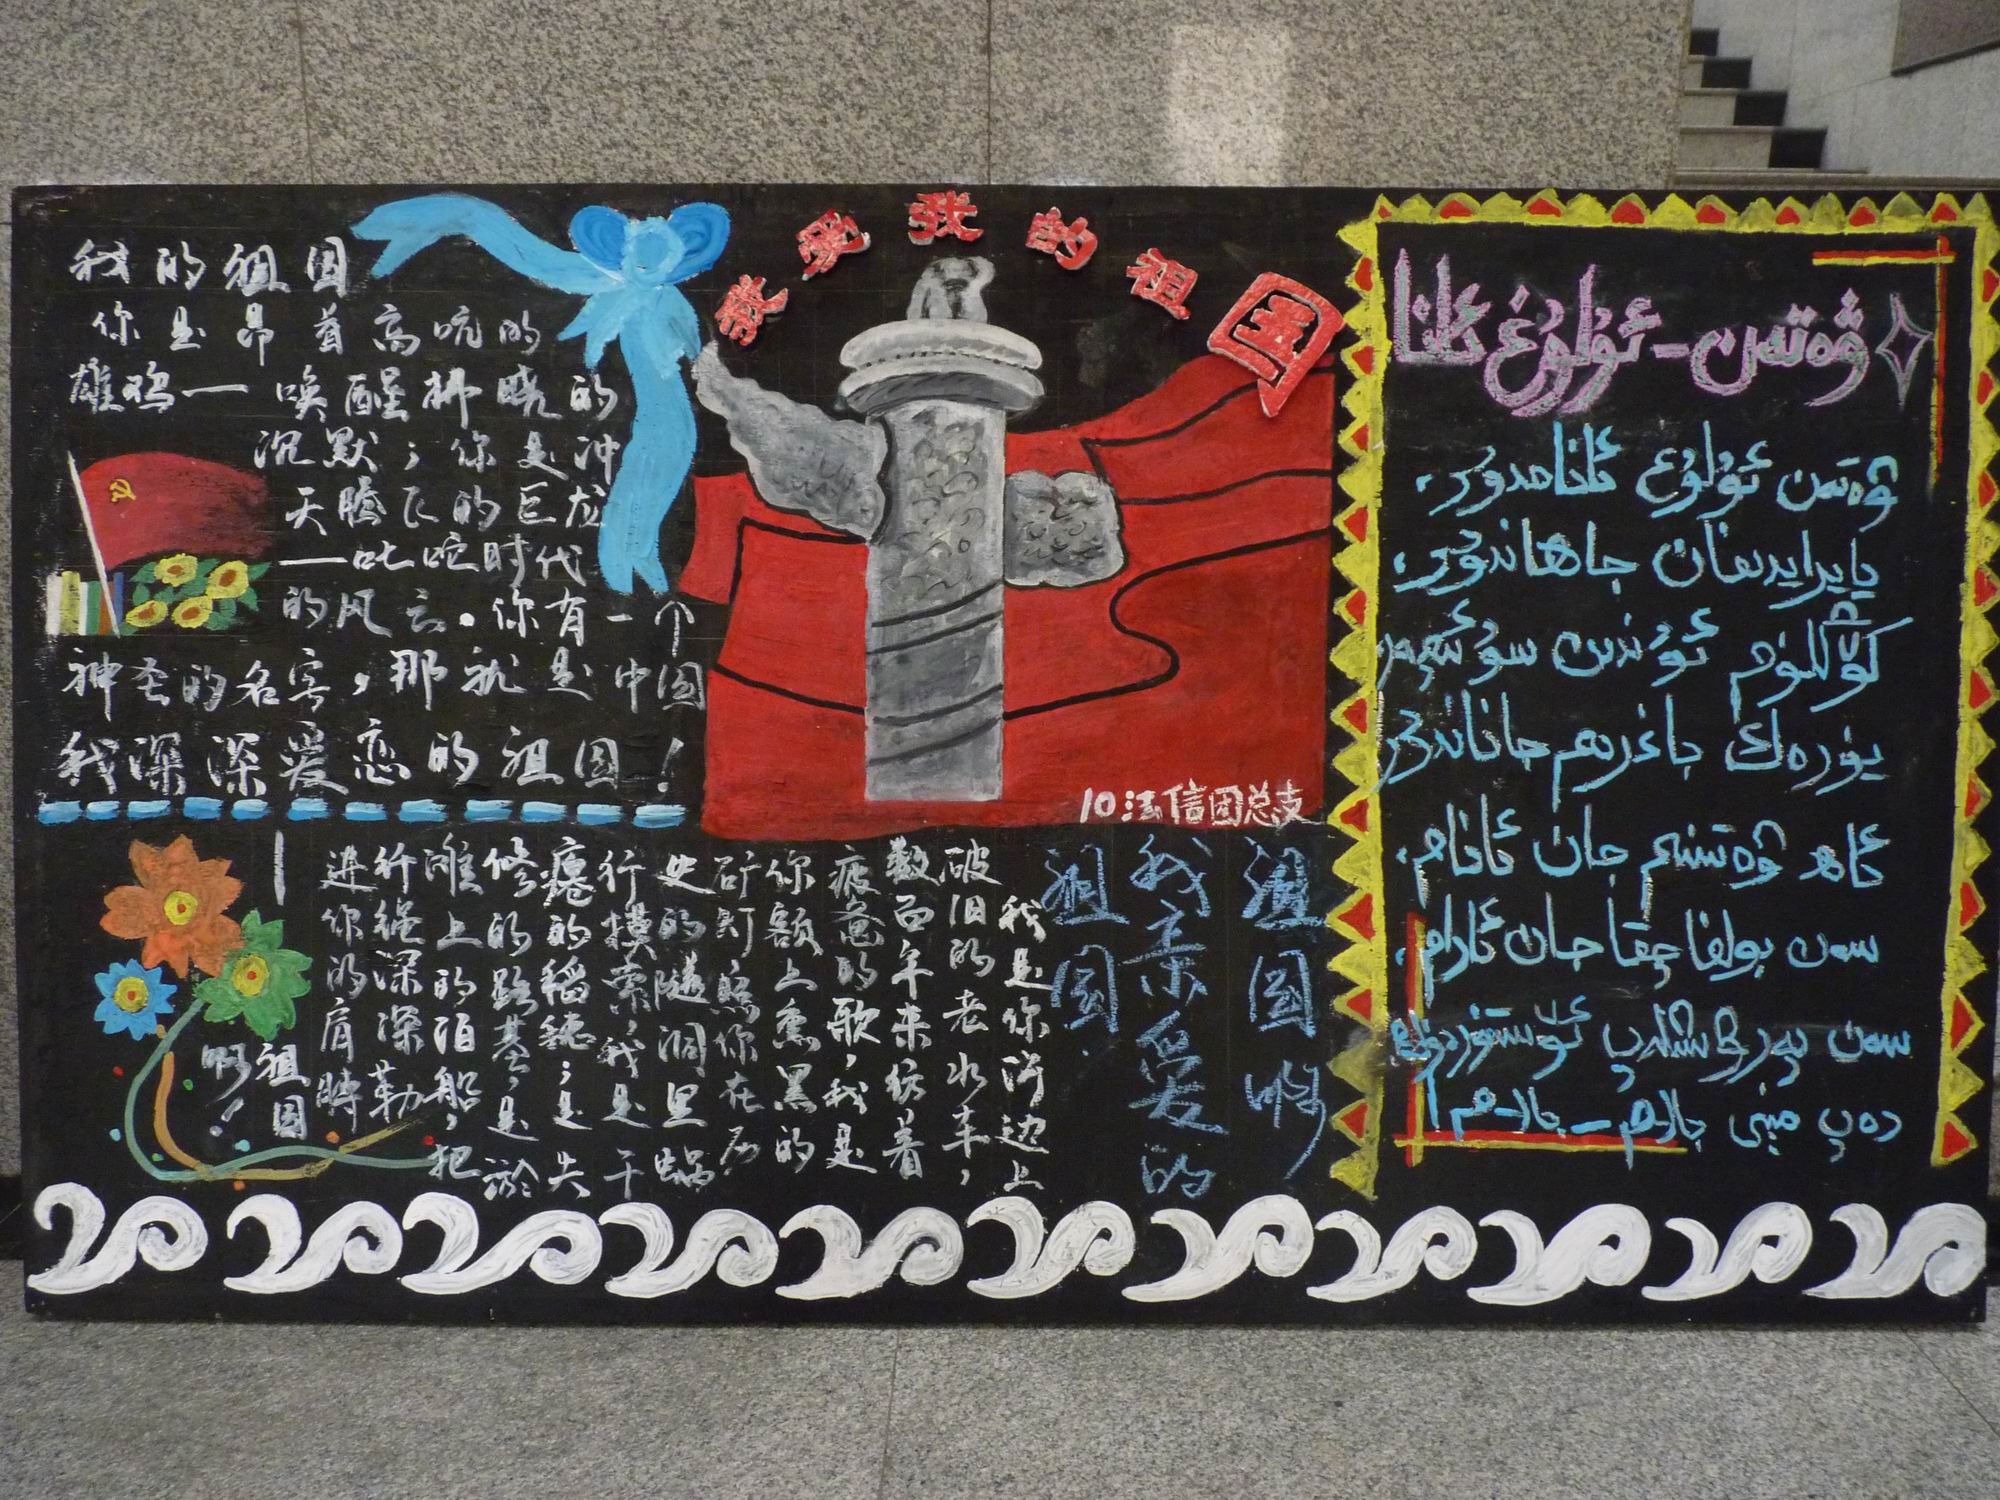 我爱我的祖国
我的祖国
你是昂首高吭的
雄鸡一唤醒拂晓的
沉默；你是冲
天腾飞的巨龙
一叱咤时代
的风云。你有一个
神圣的名字，那就是中国
我深深爱恋的祖国！
10法信团总支
祖国啊
我亲爱的
祖国
我是你河边上
破旧的老水车，
数百年来纺着
疲惫的歌，我是
你额上熏黑的
矿灯照你在历
史的隧洞里蜗
行摸索，我是干
瘪的稻穗；是失
修的路基，是淤
滩上的泊船，把
纤绳深深勒
进你的肩膊
—祖国
啊！
ۋەتەن - ئۇلۇغ ئانا
ۋەتەن ئۇلۇغ ئانامدۇر،
يايرايدىغان جاھاندۇر،
كۆڭلۈم ئۇندىن سۇ ئىچەر
يۈرەك باغرىم جاناندۇر
ئاھ ۋەتىنىم جان ئانام،
سەن بولغاچقا جان ئارام،
سەن پەرۋىشلەپ ئۆستۈردۈڭ
دەپ مېنى بالام - بالام!